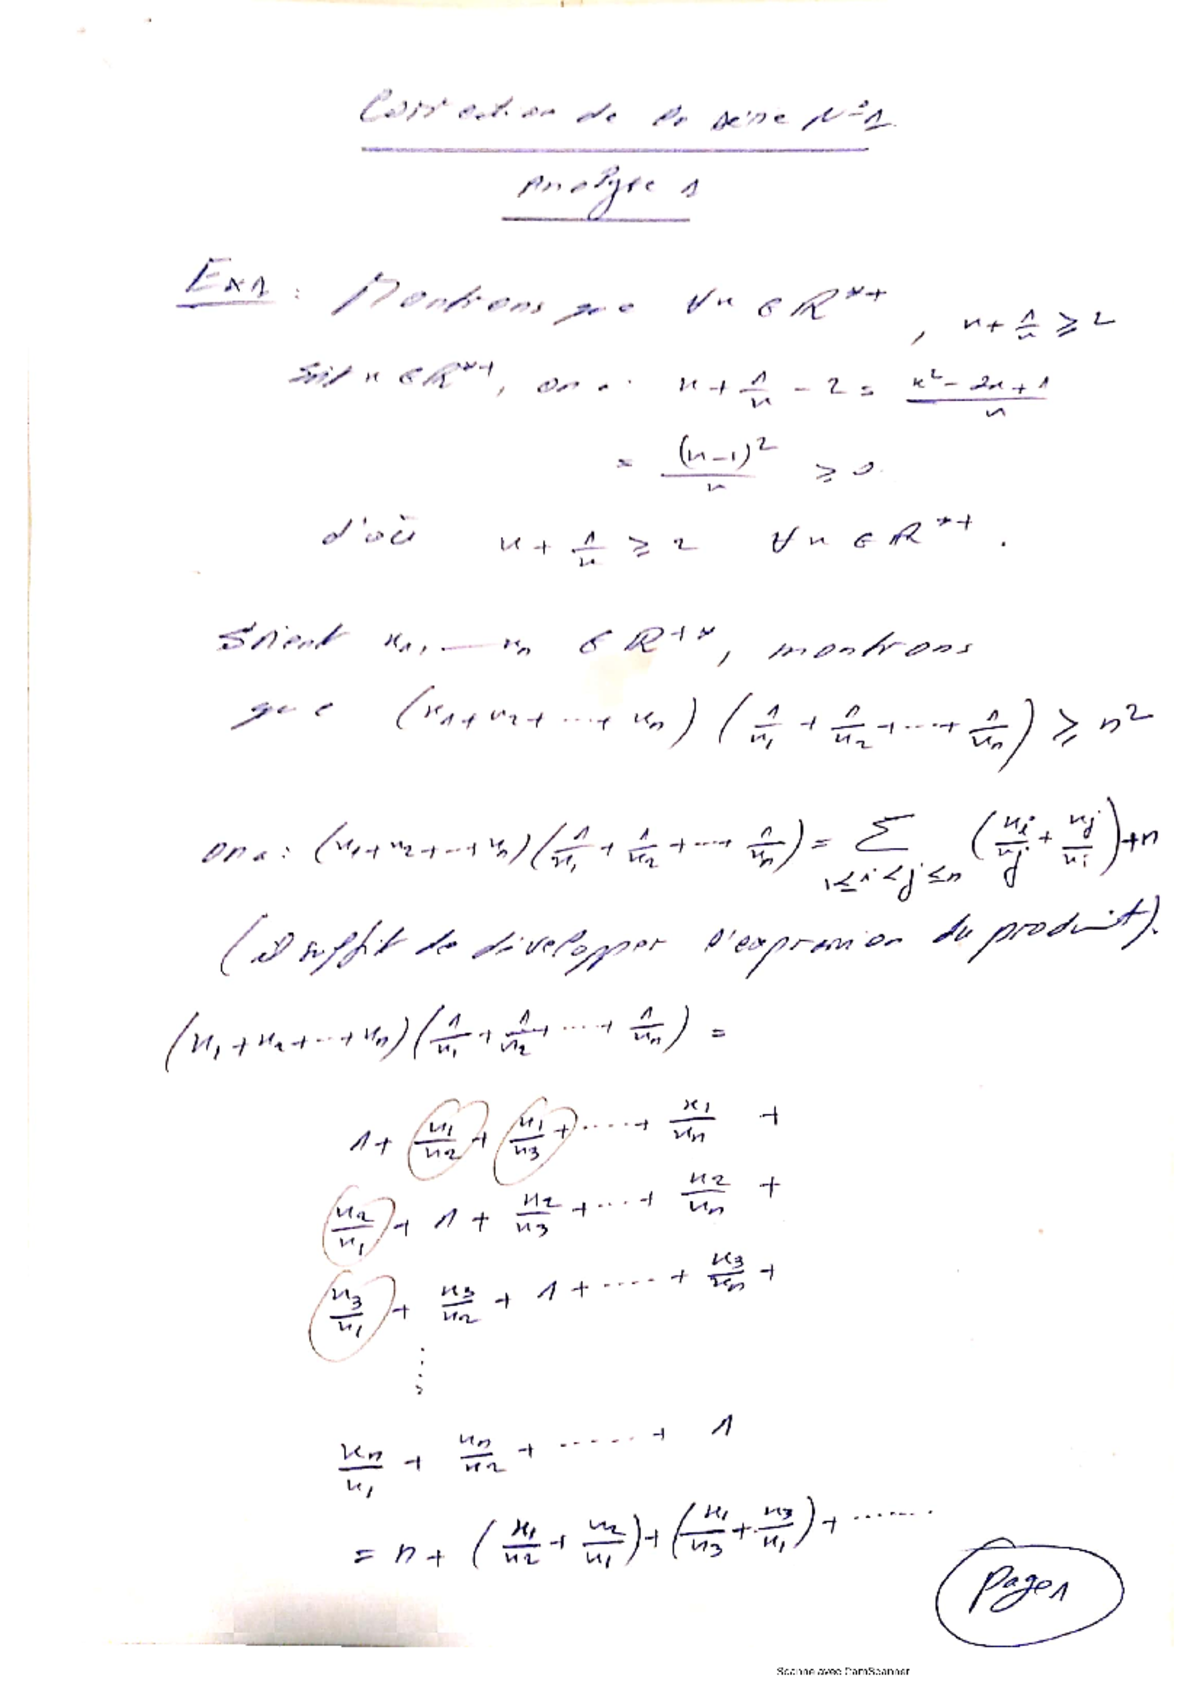 Correction de la série N°1
Analyse 1
Ex1 : Montrons que ∀x ∈ ℝ*+, x + 1/x ≥ 2
Soit x ∈ ℝ*+, on a : x + 1/x - 2 = (x² - 2x + 1)/x
= (x-1)²/x ≥ 0.
d'où x + 1/x ≥ 2 ∀x ∈ ℝ*+.
Soient x₁, — xₙ ∈ ℝ+*, montrons
que (x₁ + x₂ + ... + xₙ) (1/x₁ + 1/x₂ + ... + 1/xₙ) ≥ n²
on a : (x₁ + x₂ + ... + xₙ)(1/x₁ + 1/x₂ + ... + 1/xₙ) = Σ 1≤i<j≤n (xi/xj + xj/xi) + n
(il suffit de développer l'expression du produit).
(x₁ + x₂ + ... + xₙ)(1/x₁ + 1/x₂ + .... + 1/xₙ) =
1 + x₁/x₂ + x₁/x₃ + .... + x₁/xₙ +
x₂/x₁ + 1 + x₂/x₃ + ... + x₂/xₙ +
x₃/x₁ + x₃/x₂ + 1 + .... + x₃/xₙ +
⋮
xₙ/x₁ + xₙ/x₂ + ...... + 1
= n + (x₁/x₂ + x₂/x₁) + (x₁/x₃ + x₃/x₁) + .......
Page 1
Scanné avec CamScanner